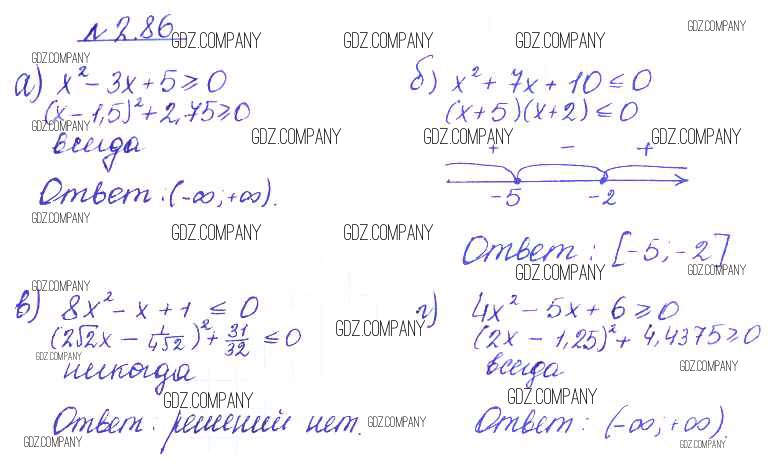 № 2.86
GDZ.COMPANY
GDZ.COMPANY GDZ.COMPANY GDZ.COMPANY
GDZ.COMPANY
а) x² - 3x + 5 ≥ 0
(x - 1,5)² + 2,75 ≥ 0
GDZ.COMPANY
всегда
Ответ: (-∞; +∞).
GDZ.COMPANY
б) x² + 7x + 10 ≤ 0
(x + 5)(x + 2) ≤ 0
GDZ.COMPANY GDZ.COMPANY GDZ.COMPANY
+ - +
-5 -2
GDZ.COMPANY GDZ.COMPANY
Ответ: [-5; -2]
GDZ.COMPANY GDZ.COMPANY
GDZ.COMPANY
в) 8x² - x + 1 ≤ 0
(2√2x - 1/4√2)² + 31/32 ≤ 0
GDZ.COMPANY
никогда
GDZ.COMPANY
Ответ: решений нет.
GDZ.COMPANY
GDZ.COMPANY
г) 4x² - 5x + 6 ≥ 0
GDZ.COMPANY
(2x - 1,25)² + 4,4375 ≥ 0
всегда
GDZ.COMPANY
GDZ.COMPANY
Ответ: (-∞; +∞).
GDZ.COMPANY
GDZ.COMPANY